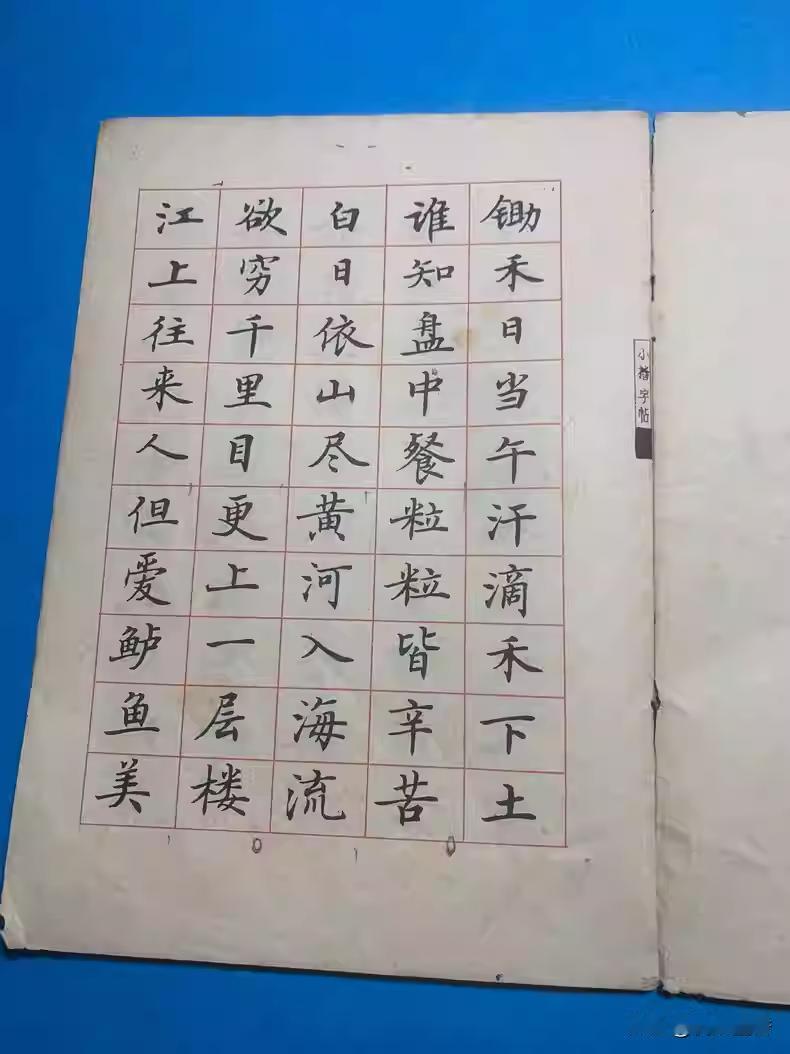 锄禾日当午汗滴禾下土
谁知盘中餐粒粒皆辛苦
白日依山尽黄河入海流
欲穷千里目更上一层楼
江上往来人但爱鲈鱼美
小楷字帖